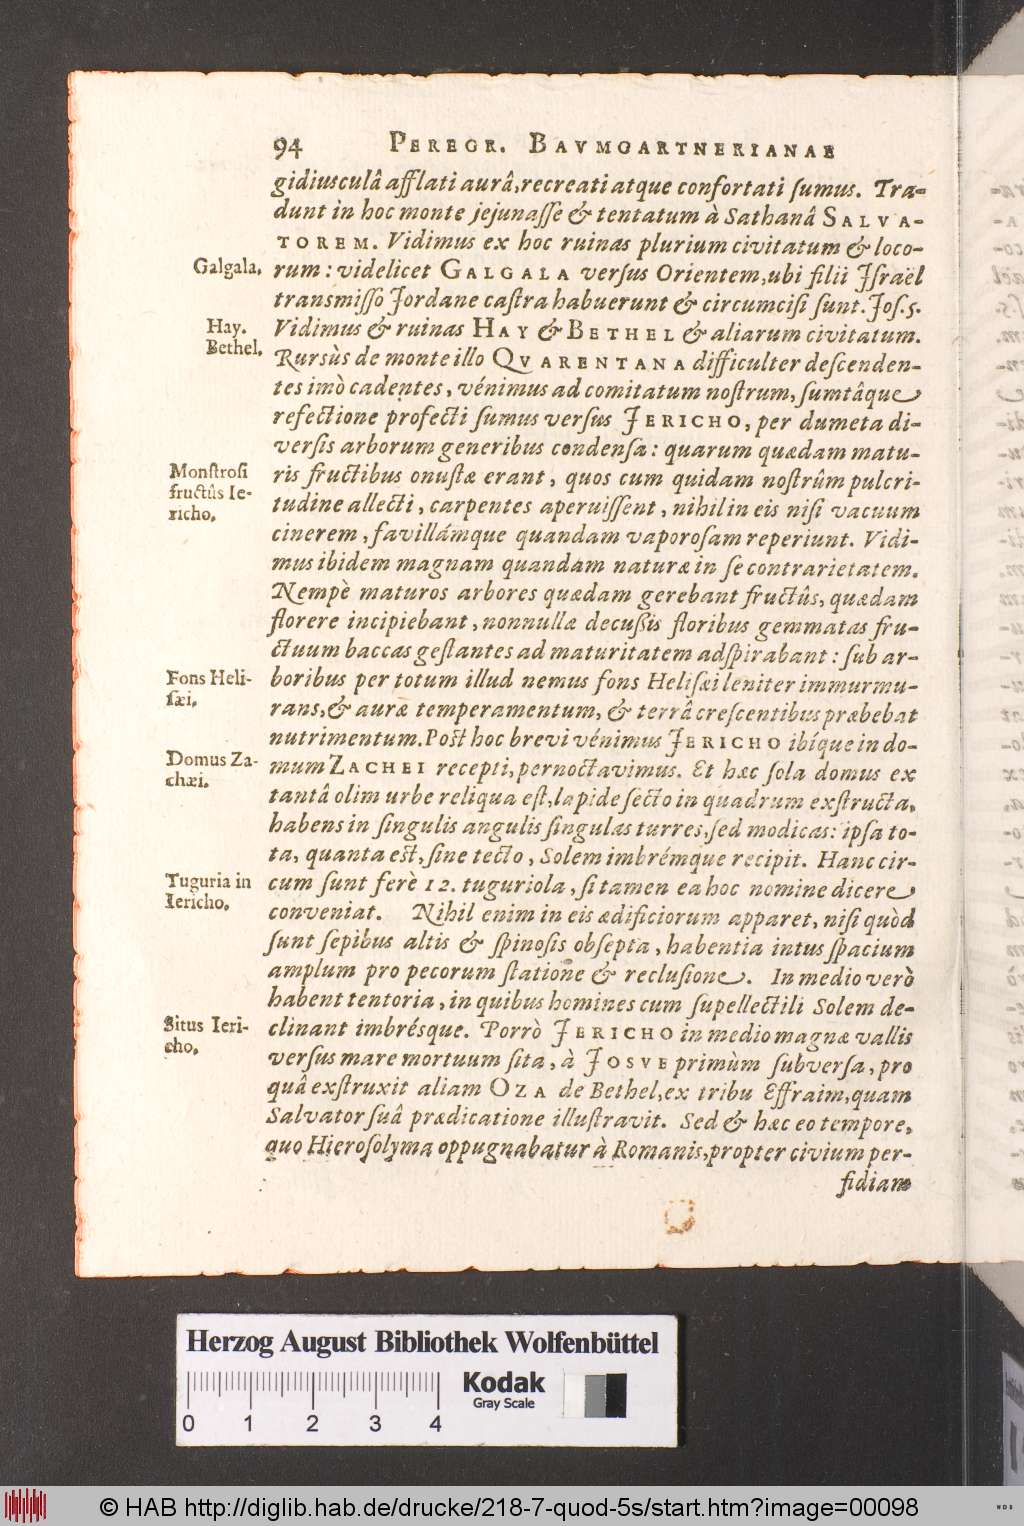 94 PEREGR. BAVMGARTNERIANAE
gidiusculâ afflati aurâ, recreati atque confortati sumus. Tra-
dunt in hoc monte jejunasse & tentatum à Sathanâ SALVA-
TOREM. Vidimus ex hoc ruinas plurium civitatum & loco-
Galgala.
rum: videlicet GALGALA versus Orientem, ubi filii Israël
transmisso Jordane castra habuerunt & circumcisi sunt. Jos. 5.
Hay.
Bethel.
Vidimus & ruinas HAY & BETHEL & aliarum civitatum.
Rursùs de monte illo QVARENTANA difficulter descenden-
tes imò cadentes, vénimus ad comitatum nostrum, sumtâque
refectione profecti sumus versus JERICHO, per dumeta di-
versis arborum generibus condensa: quarum quædam matu-
Monstrosi
fructûs Ie-
richo.
ris fructibus onustæ erant, quos cum quidam nostrûm pulcri-
tudine allecti, carpentes aperuissent, nihil in eis nisi vacuum
cinerem, favillámque quandam vaporosam reperiunt. Vidi-
mus ibidem magnam quandam naturæ in se contrarietatem.
Nempè maturos arbores quædam gerebant fructûs, quædam
florere incipiebant, nonnullæ decussis floribus gemmatas fru-
ctuum baccas gestantes ad maturitatem adspirabant: sub ar-
Fons Heli-
sæi.
boribus per totum illud nemus fons Helisæi leniter immurmu-
rans, & auræ temperamentum, & terrâ crescentibus præbebat
nutrimentum. Post hoc brevi vénimus JERICHO ibíque in do-
Domus Za-
chæi.
mum ZACHEI recepti, pernoctavimus. Et hæc sola domus ex
tantâ olim urbe reliqua est, lapide secto in quadrum exstructa,
habens in singulis angulis singulas turres, sed modicas: ipsa to-
ta, quanta est, sine tecto, Solem imbrémque recipit. Hanc cir-
Tuguria in
Iericho.
cum sunt ferè 12. tuguriola, si tamen ea hoc nomine dicere
conveniat. Nihil enim in eis ædificiorum apparet, nisi quòd
sunt sepibus altis & spinosis obsepta, habentia intus spacium
amplum pro pecorum statione & reclusione. In medio verò
habent tentoria, in quibus homines cum supellectili Solem de-
Situs Ieri-
cho.
clinant imbrésque. Porrò JERICHO in medio magnæ vallis
versus mare mortuum sita, à JOSVE primùm subversa, pro
quâ exstruxit aliam OZA de Bethel, ex tribu Effraim, quam
Salvator suâ prædicatione illustravit. Sed & hæc eo tempore,
quo Hierosolyma oppugnabatur à Romanis, propter civium per-
fidiam
Herzog August Bibliothek Wolfenbüttel
0 1 2 3 4
Kodak
Gray Scale
© HAB http://diglib.hab.de/drucke/218-7-quod-5s/start.htm?image=00098